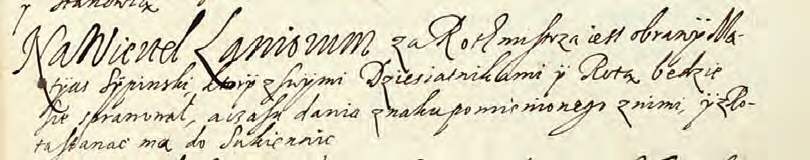 y stanowix
Na Wiertel Lgniorum za Rothmistrza iest obranÿ Ma-
tyas Sÿpinski, ktorÿ z swymi Dziesiatnikami ÿ Rotą będzie
się sprawował, a czasu dania znaku pomienionego z nimi, ÿ z Ro-
tą stanąć ma do Sukiennic